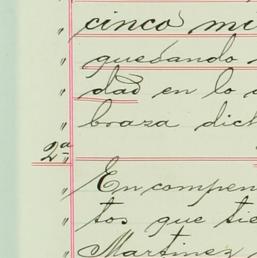 " cinco mi
" quedando
" dad en lo
" braza dich
2ª
" En compen
" tos que tie
" Martinez